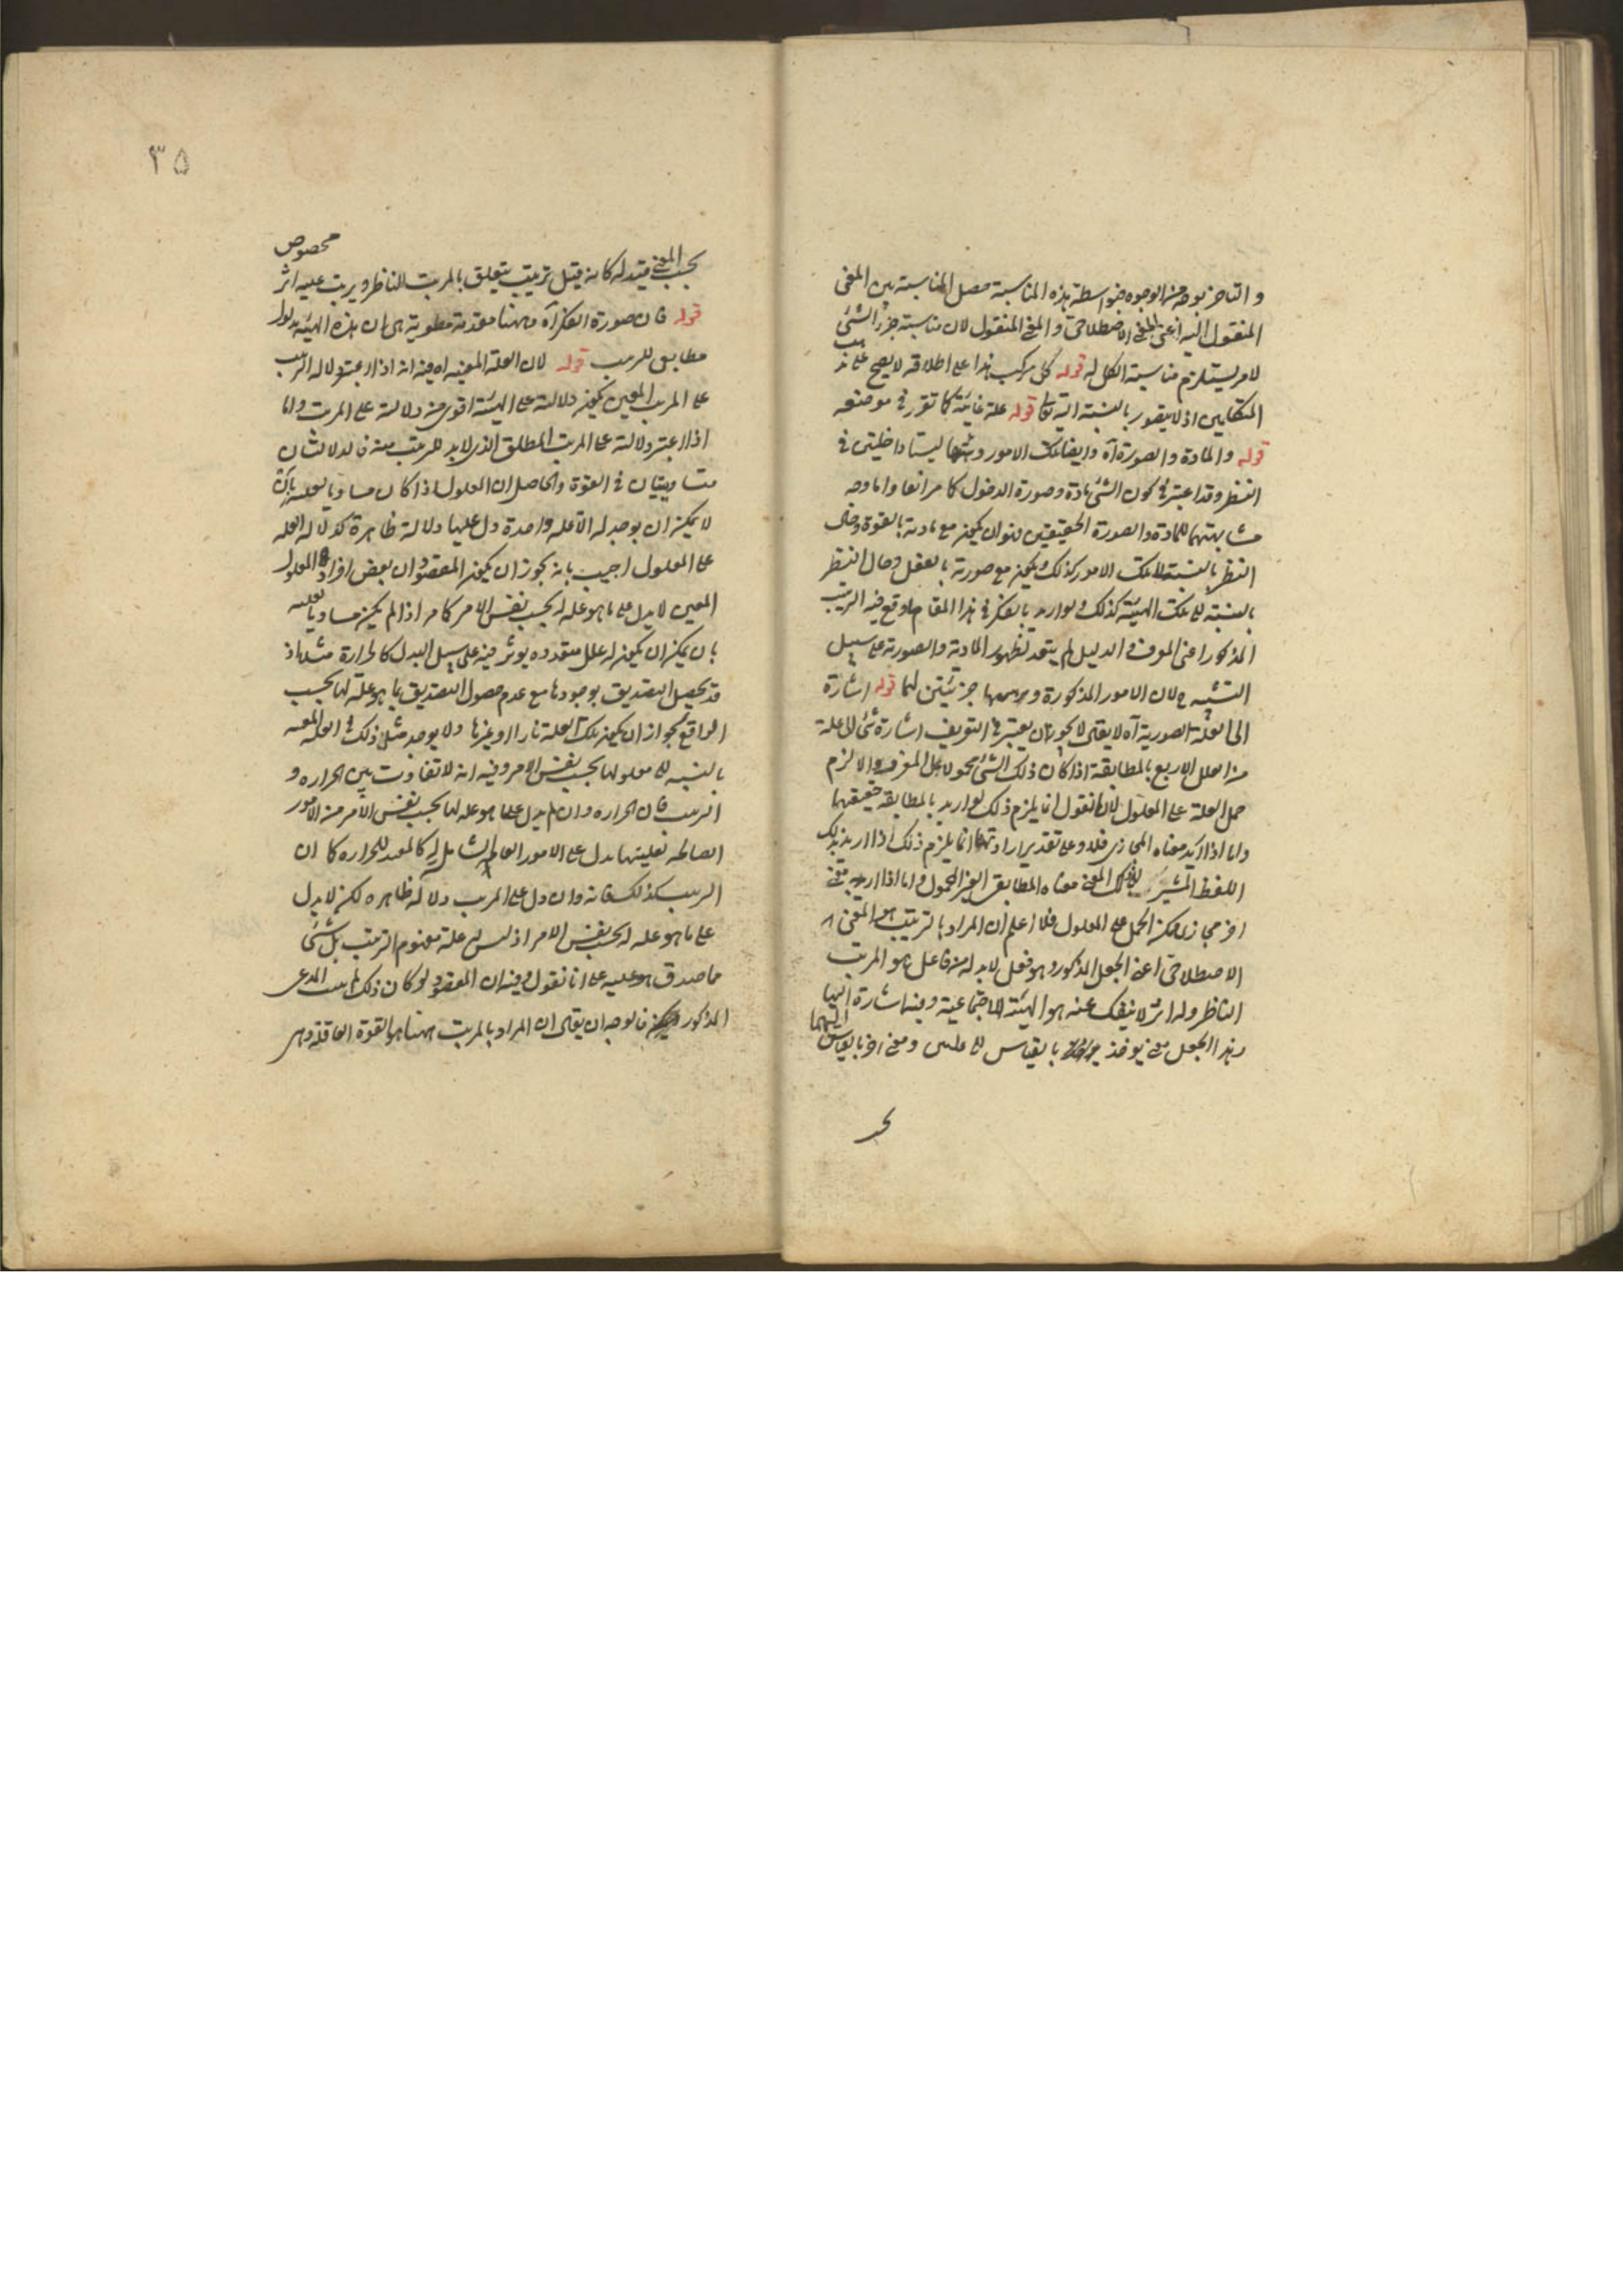 والتأخر بوجه من الوجوه فبواسطة هذه المناسبة حصل المناسبة بين المعنى
المنقول اليه اعنى المعنى الاصطلاحى والمعنى المنقول لان مناسبة جزء الشئ
لامر يستلزم مناسبة الكل له قوله كل مركب هذا على اطلاقه لا يصح على مذهب
المتكلمين اذ لا يتصور بالنسبة اليه تعالى قوله علة غائية كما تقرر فى موضعه
قوله والمادة والصورة آه وايضا تلك الامور وهيئتها ليستا داخلتين فى
النظر وقد اعتبر فى كون الشئ مادة وصورة الدخول كما مر انفا واما وجه
مشابهتهما للمادة والصورة الحقيقيتين فهو ان يكون مع مادته بالقوة وحال
النظر بالنسبة الى تلك الامور كذلك ويكون مع صورته بالفعل وحال النظر
بالنسبة الى تلك الهيئة كذلك ولو اريد بالفكر فى هذا المقام ما وقع فيه الترتيب
المذكور اعنى المعرف والدليل لم يبعد تظهور المادية والصورية على سبيل
التشبيه ح لان الامور المذكورة و جزئيتين لها قوله اشارة
الى العلة الصورية آه لا يقال لا يجوز ان يعتبر فى التعريف اشارة شئ الى علة
من العلل الاربع بالمطابقة اذا كان ذلك الشئ محمولا على المعرف والا لزم
حمل العلة على المعلول لانا نقول انما يلزم ذلك لو اريد بالمطابقة حقيقتها
واما اذا اريد معناه المجازى فلا وعلى تقدير ارادتها انما يلزم ذلك اذا اريد بذلك
اللفظ المشير المعنى معناه المطابقى الغير المحمول واما اذا اريد به معنى
اخر مجازى يمكن الحمل على المعلول فلا اعلم ان المراد بالترتيب هو المعنى
الاصطلاحى اعنى الجعل المذكور وهو فعل لا بد له من فاعل هو المرتب
الناظر وله اثر لا ينفك عنه هو الهيئة الاجتماعية وفيه اشارة اليها
وهذا الجعل معنى يوخذ بالقياس الى ومعنى اخر بالقياس اليهما
بحسب المعنى قيد له كانه قيل ترتيب يتعلق بالمرتب الناظر ويرتب عليه اثر مخصوص
قوله فان صورة الفكر آه وههنا مقدمة مطوية هى ان هذه الهيئة مدلول
مطابق للترتيب قوله لان العلة المعينه آه فيه انه اذا اعتبر دلالة الترتيب
على المرتب المعين يكون دلالته على الهيئة اقوى من دلالته على المرتب واما
اذا اعتبر دلالته على المرتب المطلق الذى لا بد للترتيب منه فالدلالتان
متساويتان فى القوة والحاصل ان المعلول اذا كان مساويا لعلته بان
لا يمكن ان يوجد له الا علة واحدة دل عليها دلالة ظاهرة كدلالة العلة
على المعلول اجيب بانه يجوز ان يكون المقصود ان بعض افراد المعلول
المعين لا يدل على ما هو علة له بحسب نفس الامر كما مر اذا لم يكن مساويا لعلته
بان يمكن ان يكون له علل متعدده يوثر فيه على سبيل البدل كالحرارة مثلا اذ
قد يحصل التصديق بوجودها مع عدم حصول التصديق بما هو علة لها بحسب
الواقع لجواز ان يكون تلك العلة نارا او غيرها ولا يوجد مثل ذلك فى العلة المعينه
بالنسبه الى معلولها بحسب نفس الامر وفيه انه لا تفاوت بين الحراره و
الترتيب فان الحراره وان لم يدل على ما هو علة لها بحسب نفس الامر من الامور
الصالحه لعليتها يدل على الامور العام الشامل له كالمعد للحراره كما ان
الترتيب كذلك فانه وان دل على المرتب دلالة ظاهره لكنه لا يدل
على ما هو علة له بحسب نفس الامر اذ ليس علة مفهوم الترتيب بل شئ
مما صدق هو عليه على انا نقول وفيه ان المقصود لو كان ذلك المدعى
المذكور فالوجه ان يقال ان المراد بالمرتب ههنا هو القوة العاقلة وهى
بحسب
٣٥